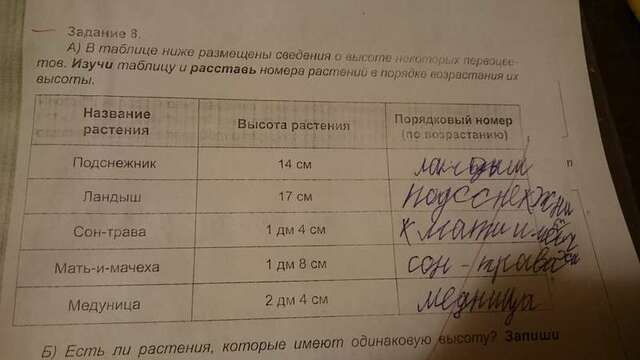 Задание 8.
А) В таблице ниже размещены сведения о высоте некоторых первоцве-
тов. Изучи таблицу и расставь номера растений в порядке возрастания их
высоты.
Название растения Высота растения Порядковый номер (по возрастанию)
Подснежник 14 см ландыш
Ландыш 17 см подсснежни
Сон-трава 1 дм 4 см к мати и
Мать-и-мачеха 1 дм 8 см сон-трава
Медуница 2 дм 4 см медница
Б) Есть ли растения, которые имеют одинаковую высоту? Запиши